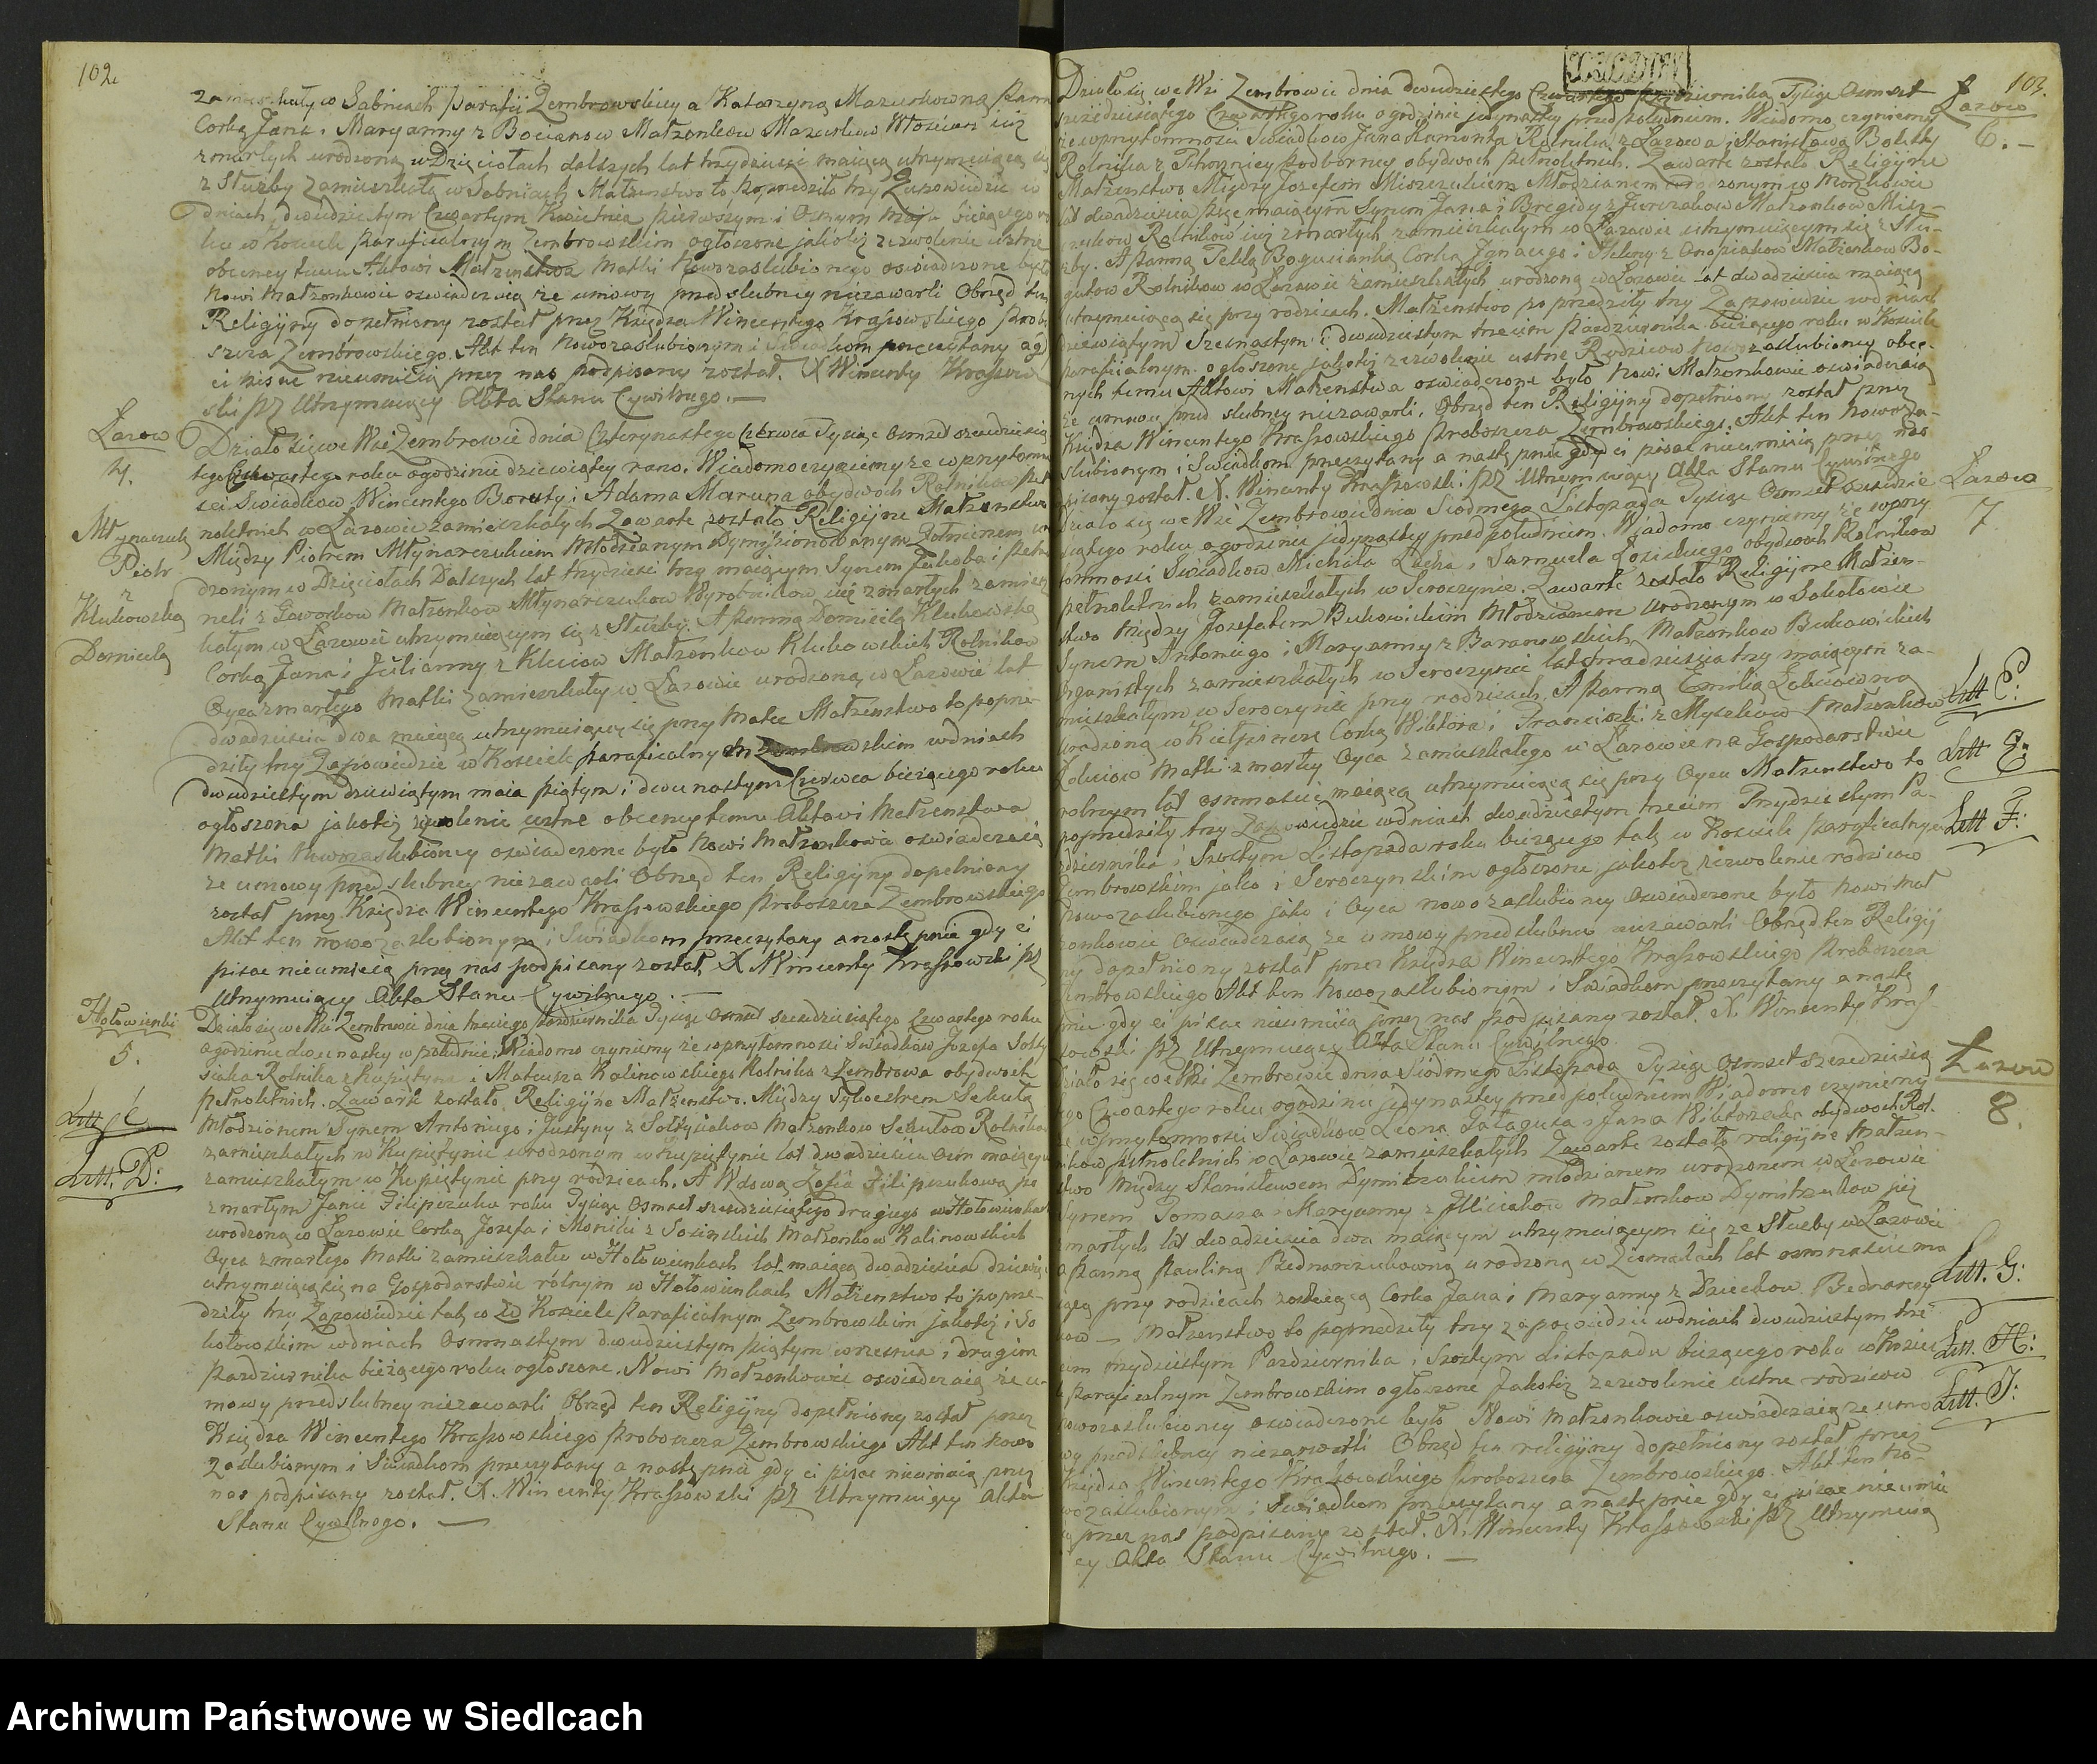 102
w Sabniach Parafii Zembrowskiey a Katarzyną Mazurkowną Panną
Corką Jana i Maryanny z Bocianow Małzonkow Mazurkow Włoscian iuz
zmarłych urodzoną w Dzięciołach dalszych lat trzydziesci maiącą utrzymuiącą się
z Słuzby zamieszkałą w Sabniach Małzenstwo to poprzedziły trzy Zapowiedzie w
dniach dwudziestym Czwartym Kwietnia pierwszym i Osmym Maja biezącego
w Kosciele Parafialnym Zembrowskim ogłoszone jakotez zezwolenie ustne
obecney temu Aktowi Małzenstwa Matki Nowozaslubionego oswiadczone było
Nowi Małzonkowie oswiadczaią ze umowy przedslubney niezawarli Obrzęd ten
Religijny dopełniony został przez Księdza Wincentego Krassowskiego Probo
szcza Zembrowskiego. Akt ten Nowozaslubionym i Swiadkom przeczytany a gdy
ci pisac nieumieią przez nas podpisany został. X Wincenty Krassow
ski pz Utrzymuiący Akta Stanu Cywilnego.—
Łazow
4.
Młynarczuk
Piotr
z
Klukowską
Domicelą
Działo się we Wsi Zembrowie dnia Czternastego Czerwca Tysiąc Osmset szescdziesią
tego Czwartego roku o godzinie dziewiątey rano. Wiadomo czyniemy ze w przytomno
sci Swiadkow Wincentego Boruty i Adama Maruna obydwoch Rolnikow peł
noletnich w Łazowie zamieszkałych Zawarte zostało Religijne Małzenstwo
Między Piotrem Młynarczukiem Młodzianym Dymissionowanym Zołnierzem uro
dzonym w Dzięciołach Dalszych lat trzydziesci trzy maiącym Synem Jakoba i Petro
neli z Gaworkow Małzonkow Młynarczukow Wyrobnikow iuz zmarłych zamiesz
kałym w Łazowie utrzymuiącym się z Słuzby. A Panną Domicelą Klukowską
Corką Jana i Julianny z Klucow Małzonkow Klukowskich Rolnikow
Oyca zmarłego Matki zamieszkałey w Łazowie urodzoną w Łazowie lat
dwadziescia dwa maiącą utrzymuiącey się przy Matce Małzenstwo to poprze
dziły trzy Zapowiedzie w Kosciele parafialnym Zembrowskim w dniach
dwudziestym dziewiątym maia piątym i dwunastym Czerwca biezącego roku
ogłoszone jakotez zezwolenie ustne obecney temu Aktowi Małzenstwa
Matki Nowozaslubioney oswiadczone było Nowi Małzonkowie oswiadczaią
ze umowy przedslubney niezawarli Obrzęd ten Religijny dopełniony
został przez Księdza Wincentego Krassowskiego Proboszcza Zembrowskiego
Akt ten nowozaslubionym i Swiadkom przeczytany a następnie gdy ci
pisac nieumieią przez nas podpisany został X Wincenty Krassowski pz
Utrzymuiący Akta Stanu Cywilnego.—
Hołowienki
5.
Litt C.
Litt. D:
Działo się we Wsi Zembrowie dnia trzeciego Pazdziernika Tysiąc Osmset szescdziesiątego Czwartego roku
o godzinie dwunastey w południe. Wiadomo czyniemy ze w przytomnosci Swiadkow Jozefa Sołty
siaka Rolnika z Kupiętyna i Mateusza Kalinowskiego Rolnika z Zembrowa obydwoch
pełnoletnich. Zawarte zostało Religijne Małzenstwo. Między Sylwestrem Sekułą
Młodzianem Synem Antoniego i Justyny z Sołtysiakow Małzonkow Sekułow Rolnikow
zamieszkałych w Kupiętynie urodzonym w Kupiętynie lat dwadziescia osm maiącym
zamieszkałym w Kupiętynie przy rodzicach. A Wdową Zofią Filipczukową po
zmarłym Janie Filipczuku roku Tysiąc Osmset szescdziesiątego drugiego w Hołowienkach
urodzoną w Łazowie Corką Jozefa i Moniki z Małzonkow Kalinowskich
Oyca zmarłego Matki zamieszkałey w Hołowienkach lat maiącą dwadziescia dziewięc
utrzymuiącą się na Gospodarstwie rolnym w Hołowienkach Małzenstwo to poprze
dziły trzy Zapowiedzie tak w Kosciele Parafialnym Zembrowskim jakotez i So
kołowskim w dniach Osmnastym dwudziestym piątym wrzesnia i drugim
Pazdziernika biezącego roku ogłoszone. Nowi Małzonkowie oswiadczaią ze u-
mowy przedslubney niezawarli Obrzęd ten Religijny dopełniony został przez
Księdza Wincentego Krassowskiego Proboszcza Zembrowskiego Akt ten nowo
zaslubionym i Swiadkom przeczytany a następnie gdy ci pisac nieumieią przez
nas podpisany został. X. Wincenty Krassowski pz Utrzymuiący Akta
Stanu Cywilnego.—
103.
Łazow
6.-
Działo się we Wsi Zembrowie dnia dwudziestego Czwartego Pazdziernika Tysiąc Osmset
szescdziesiątego Czwartego roku o godzinie jedynastey przed południem. Wiadomo czyniemy
ze w przytomnosci Swiadkow Jana Rolnika z Łazowa i Stanisława
Rolnika z Podborney obydwoch pełnoletnich. Zawarte zostało Religijne
Małzenstwo Między Jozefem Miszczukiem Młodzianem urodzonym w
lat dwadziescia pięc maiącym Synem Jana i Bregidy z Jurczakow Małzonkow Misz-
czukow Rolnikow iuz zmarłych zamieszkałym w Łazowie utrzymuiącym się z Słu-
zby. A Panną Teklą Bogucianką Corką Ignacego i Heleny z Małzonkow Bo-
gutow Rolnikow w Łazowie zamieszkałych urodzoną w Łazowie lat dwadziescia maiącą
utrzymuiącą się przy rodzicach. Małzenstwo poprzedziły trzy Zapowiedzie w dniach
dziewiątym Szesnastym i dwudziestym trzecim Pazdziernika biezącego roku w Kosciele
parafialnym ogłoszone jakotez zezwolenie ustne Rodzicow Nowozaslubioney obec-
nych temu Aktowi Małzenstwa oswiadczone było Nowi Małzonkowie oswiadczaią
ze umowy przedslubney niezawarli. Obrzęd ten Religijny dopełniony został przez
Księdza Wincentego Krassowskiego Proboszcza Zembrowskiego. Akt ten Nowoza-
slubionym i Swiadkom przeczytany a następnie gdy ci pisac nieumieią przez nas
pisany został. X. Wincenty Krassowski pz Utrzymuiący Akta Stanu Cywilnego
Łazow
7
Litt E:
Litt F:
Działo się we Wsi Zembrowie dnia Siodmego Listopada Tysiąc Osmset szescdzie
siątego roku o godzinie jedynastey przed południem. Wiadomo czyniemy ze w przy
tomnosci Swiadkow Michała i Samuela obydwoch Rolnikow
pełnoletnich zamieszkałych w Seroczynie. Zawarte zostało Religijne Małzen-
stwo Między Jozefatem Bukowickim Młodzianem Urodzonym w Sokołowie
Synem Antoniego i Maryanny z Baranowskich Małzonkow Bukowickich
Organistych zamieszkałych w Seroczynie lat dwadziescia trzy maiącym za-
mieszkałym w Seroczynie przy rodzicach. A Panną Emilią
urodzoną w Kiełpincu Corką Wiktora i Franciszki z Myszkow Małzonkow
Matki zmarłey Oyca zamieszkałego w Łazowie na Gospodarstwie
rolnym lat osmnascie maiącą utrzymuiącą się przy Oycu Małzenstwo to
poprzedziły trzy Zapowiedzie w dniach dwudziestym trzecim Trzydziestym Pa-
zdziernika i Szostym Listopada roku biezącego tak w Kosciele Parafialnym
Zembrowskim jako i Seroczynskim ogłoszone jakotez zezwolenie rodzicow
Nowozaslubionego jako i Oyca nowozaslubioney oswiadczone było Nowi Mał
zonkowie Oswiadczaią ze umowy przedslubney niezawarli Obrzęd ten Religij
ny dopełniony został przez Księdza Wincentego Krassowskiego Proboszcza
Zembrowskiego Akt ten Nowozaslubionym i Swiadkom przeczytany a nastę
pnie gdy ci pisac nieumieią przez nas podpisany został. X. Wincenty Kras-
sowski pz Utrzymuiący Akta Stanu Cywilnego
Łazow
8.
Litt. G:
Litt. H:
Litt. I:
Działo się we Wsi Zembrowie dnia Siodmego Listopada Tysiąc Osmset szescdziesią
tego Czwartego roku o godzinie jedynastey przed południem Wiadomo czyniemy
ze w przytomnosci Swiadkow Leona i Jana obydwoch Rol-
nikow pełnoletnich w Łazowie zamieszkałych Zawarte zostało religijne Małzen-
stwo Między Stanisławem Dymitrukiem młodzianem urodzonem w Łazowie
Synem Tomasza i Maryanny z Małzonkow Dymitrukow juz
zmarłych lat dwadziescia dwa maiącym utrzymuiącym się ze Słuzby w Łazowie
a Panną Pauliną Bednarczukowną urodzoną w Ziemakach lat osmnascie ma
iącą przy rodzicach zostaiącą Corką Jana i Maryanny z Dzieckow Bednarczu
kow — Małzenstwo to poprzedziły trzy zapowiedzie w dniach dwudziestym trze
cim trzydziestym Pazdziernika i Szostym Listopada biezącego roku w Koscie
le Parafialnym Zembrowskim ogłoszone Jakotez zezwolenie ustne rodzicow
nowozaslubioney oswiadczone było Nowi Małzonkowie oswiadczaią ze umo
wy przedslubney niezawarli Obrzęd ten religijny dopełniony został przez
Księdza Wincentego Krassowskiego Proboszcza Zembrowskiego. Akt ten No-
wozaslubionym i Swiadkom przeczytany a następnie gdy ci pisac nieumie
ią przez nas podpisany został. X. Wincenty Krassowski pz Utrzymuią
cy Akta Stanu Cywilnego.—
Archiwum Państwowe w Siedlcach